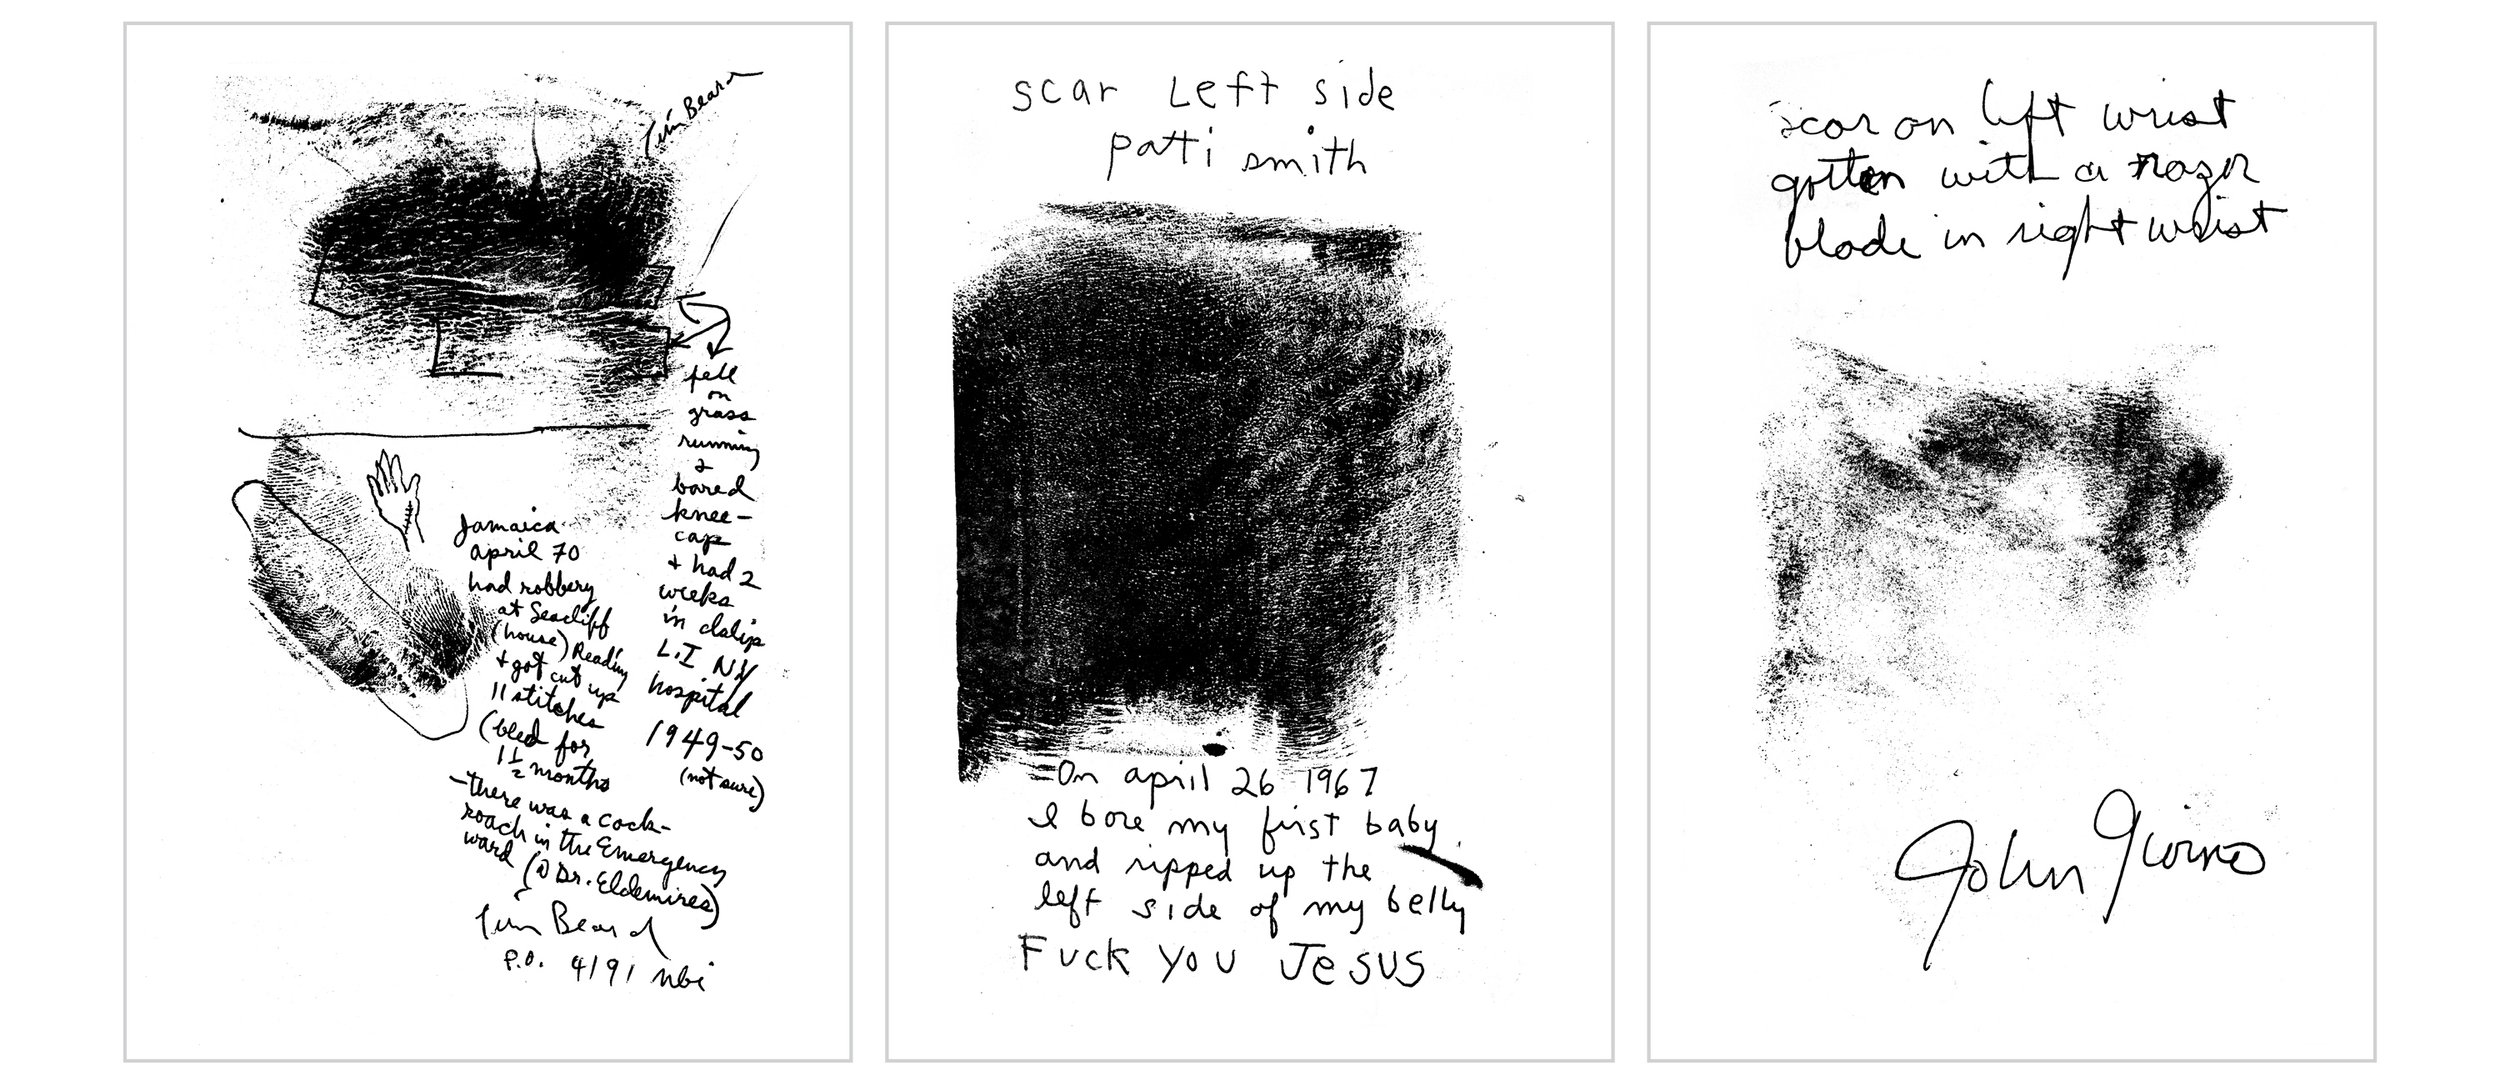 Beard
fell
on
grass
running
&
bared
knee-
cap
+ had 2
weeks
in Islip
L.I NY
hospital
1949-50
(not sure)
Jamaica
april 70
had robbery
at Seacliff
(house) Reading
+ got cut up
11 stitches
(bled for
1 1/2 months
-there was a cock-
roach in the Emergency
ward (@ Dr. Eldemires)
Beard
P.O. 4191 Nbi
scar Left side
patti smith
On april 26 1967
I bore my first baby.
and ripped up the
left side of my belly
Fuck You Jesus
scar on left wrist
gotten with a razor
blade in right wrist
John Giorno